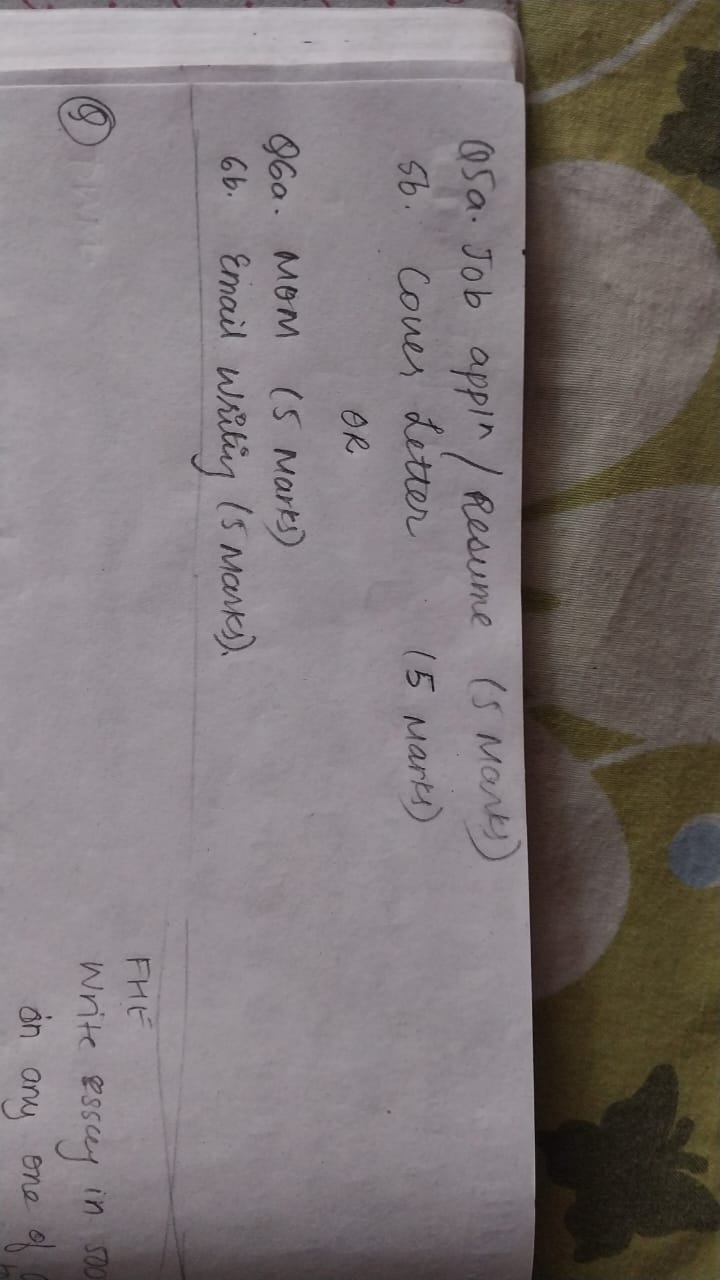 Q5a. Job appln / Resume (5 Marks)
5b. Cover Letter (5 Marks)
OR
Q6a. MOM (5 Marks)
6b. Email Writing (5 Marks).
FHE
Q
Write essay in 500
on any one of